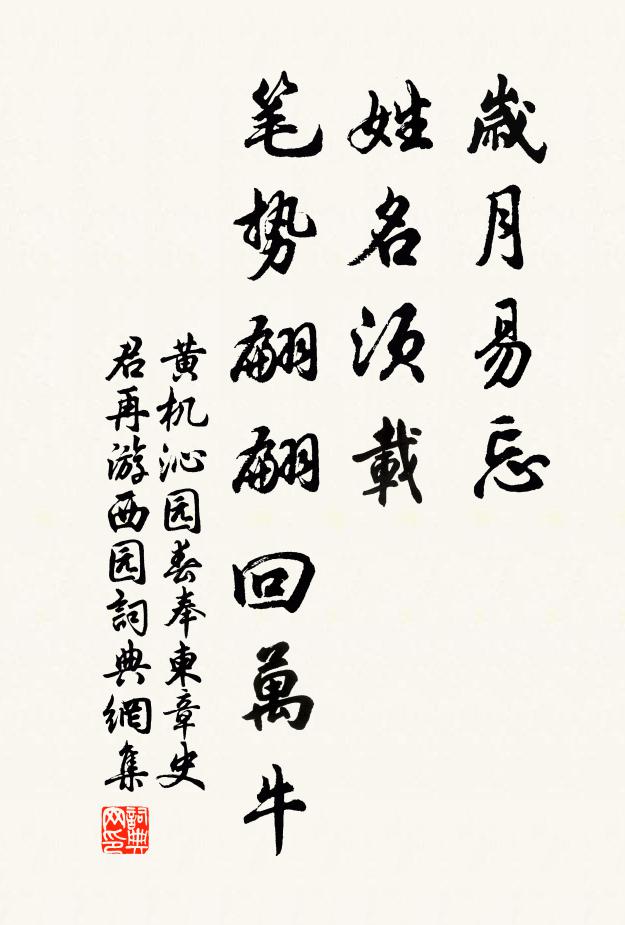 歲月易忘
姓名須載
笔势翩翩回萬牛
黄机沁园春奉柬章史
君再游西园詞典網集
詞典网印